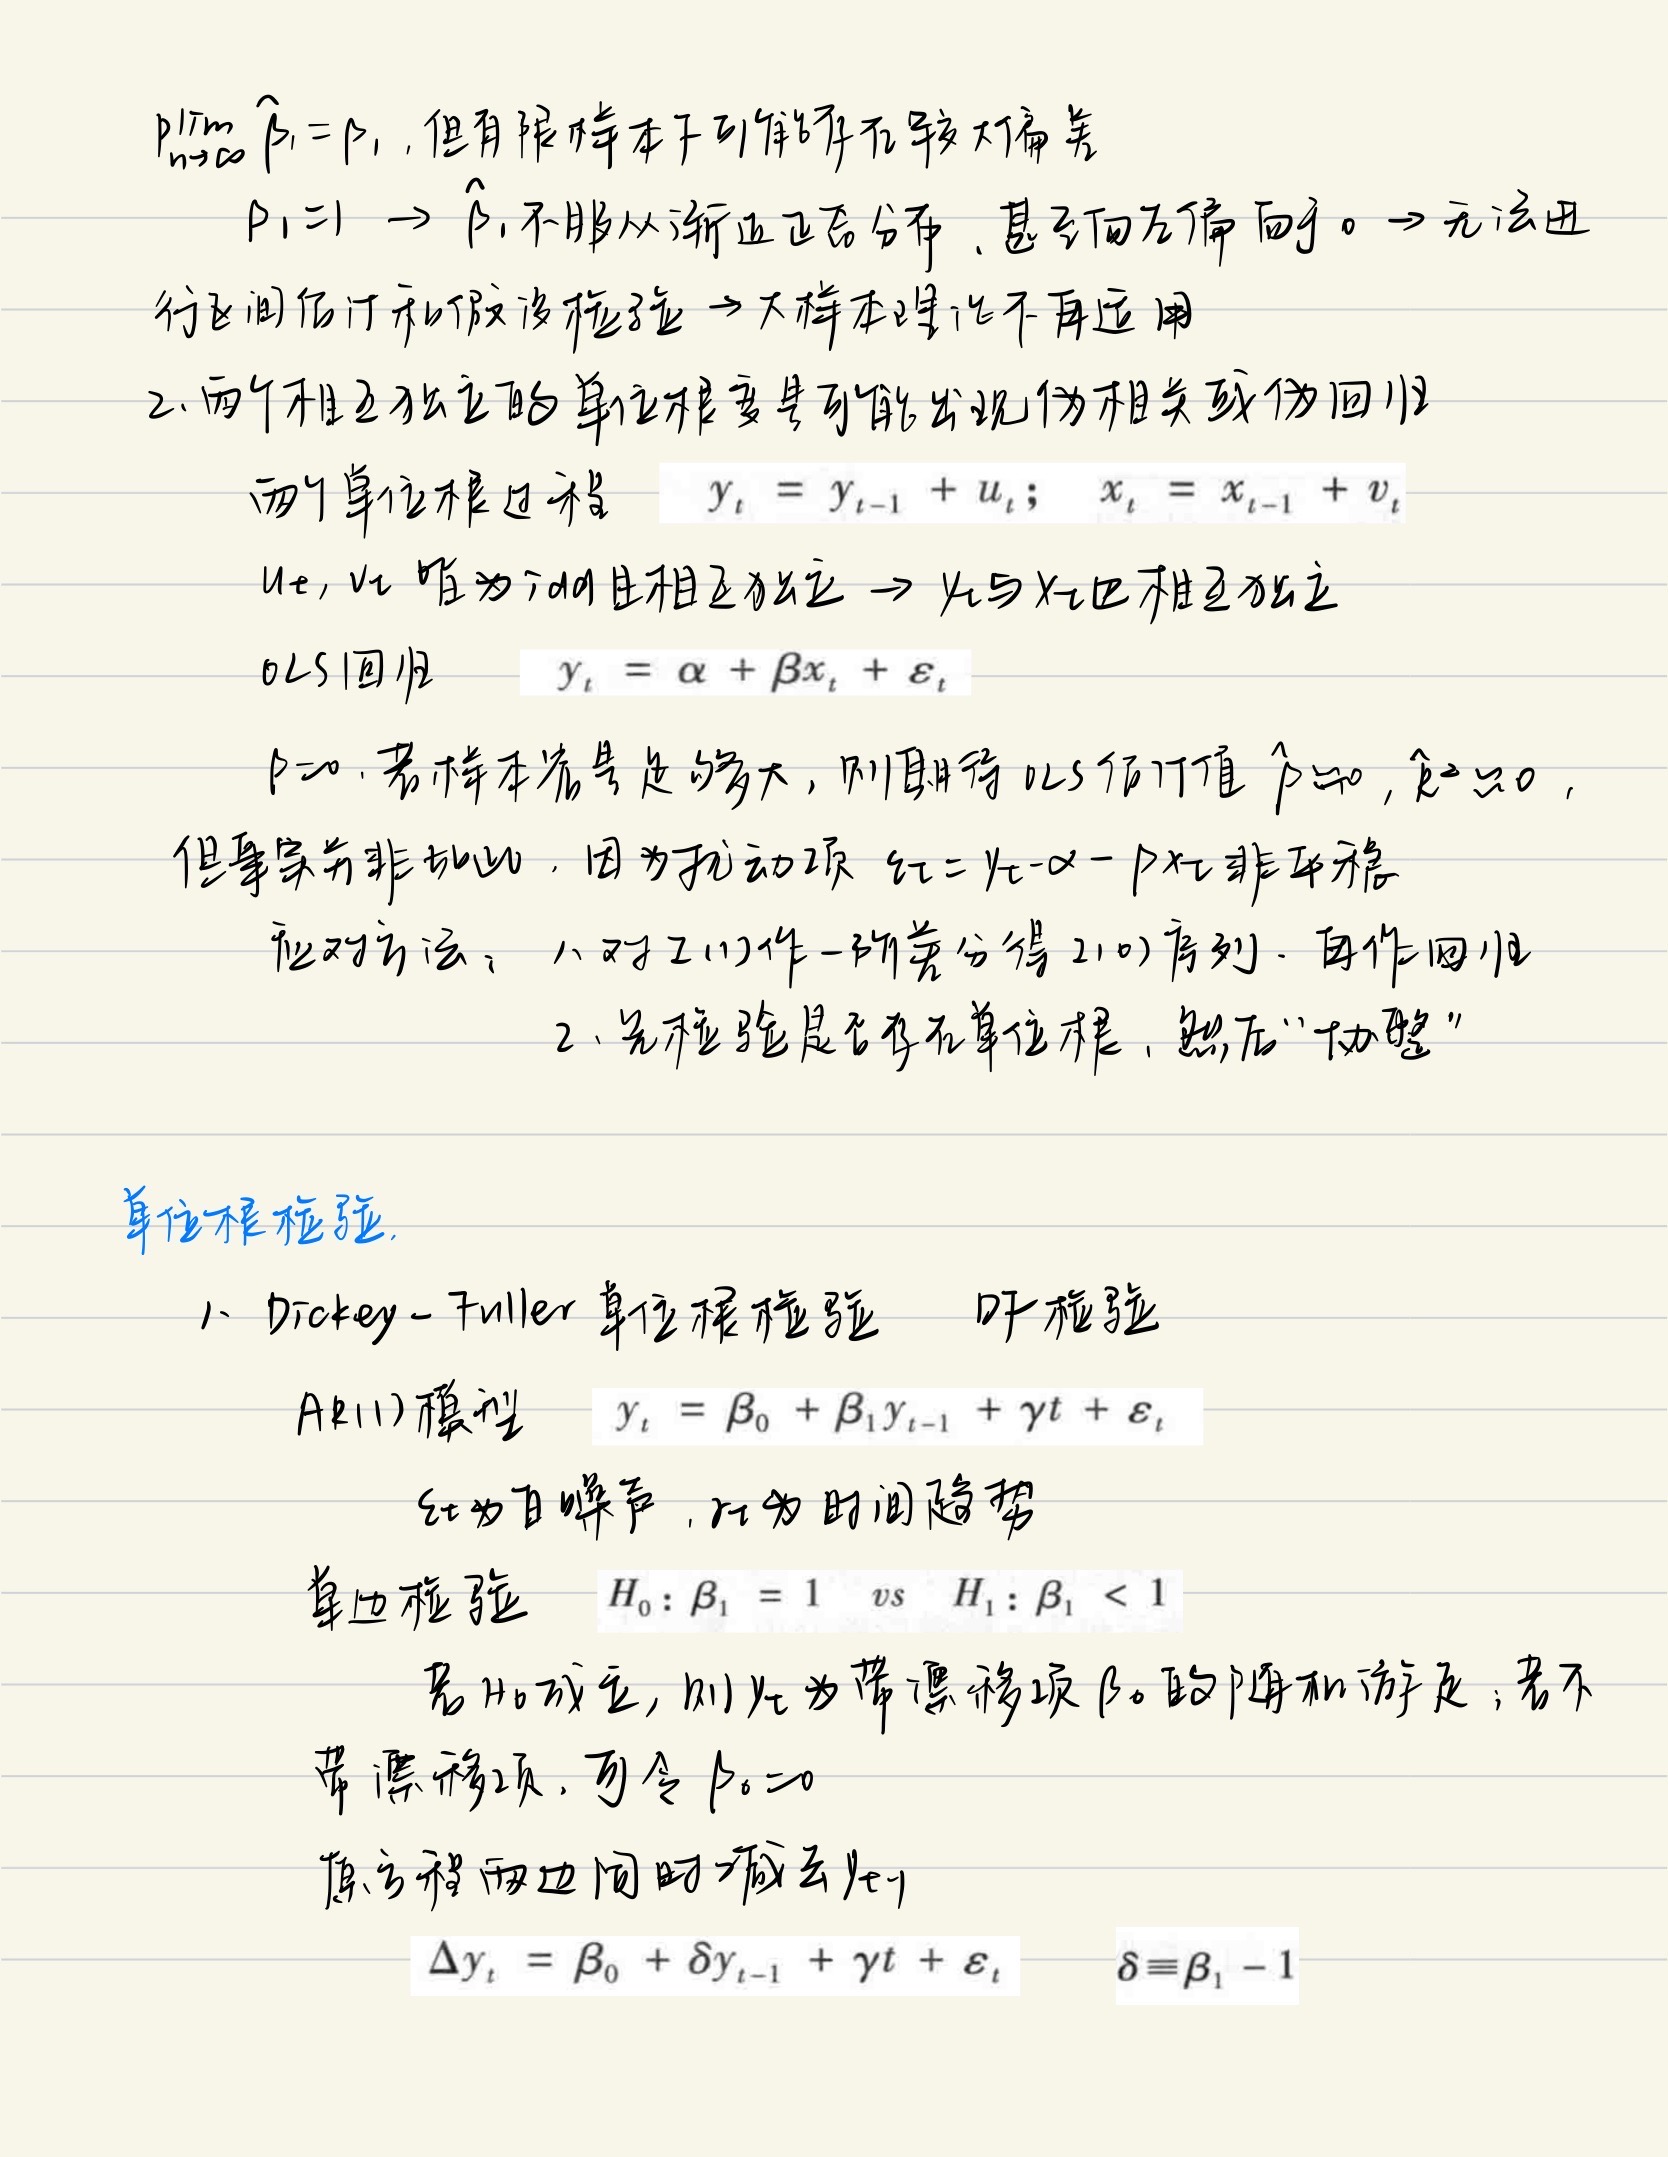 plim n→∞ β̂₁=β₁,但有限样本下可能存在较大偏差
β₁=1 → β̂₁不服从渐近正态分布、甚至向左偏向于0 → 无法进
行区间估计和假设检验 → 大样本理论不再适用
2、两个相互独立的单位根变量可能出现伪相关或伪回归
两个单位根过程 yₜ = yₜ₋₁ + uₜ; xₜ = xₜ₋₁ + vₜ
uₜ, vₜ 皆为iid且相互独立 → yₜ与xₜ也相互独立
OLS回归 yₜ = α + βxₜ + εₜ
β=0,若样本容量足够大,则期待OLS估计值 β̂≈0, R̂²≈0,
但事实并非如此,因为扰动项 εₜ=yₜ-α-βxₜ非平稳
应对方法: 1、对I(1)作一阶差分得I(0)序列.再作回归
2、先检验是否存在单位根、然后“协整”
单位根检验.
1、Dickey-Fuller单位根检验 DF检验
AR(1)模型 yₜ = β₀ + β₁yₜ₋₁ + γt + εₜ
εₜ为白噪声,γt为时间趋势
单边检验 H₀: β₁ = 1 vs H₁: β₁ < 1
若H₀成立,则yₜ为带漂移项β₀的随机游走;若不
带漂移项,可令β₀=0
原方程两边同时减去yₜ₋₁
Δyₜ = β₀ + δyₜ₋₁ + γt + εₜ δ≡β₁ - 1